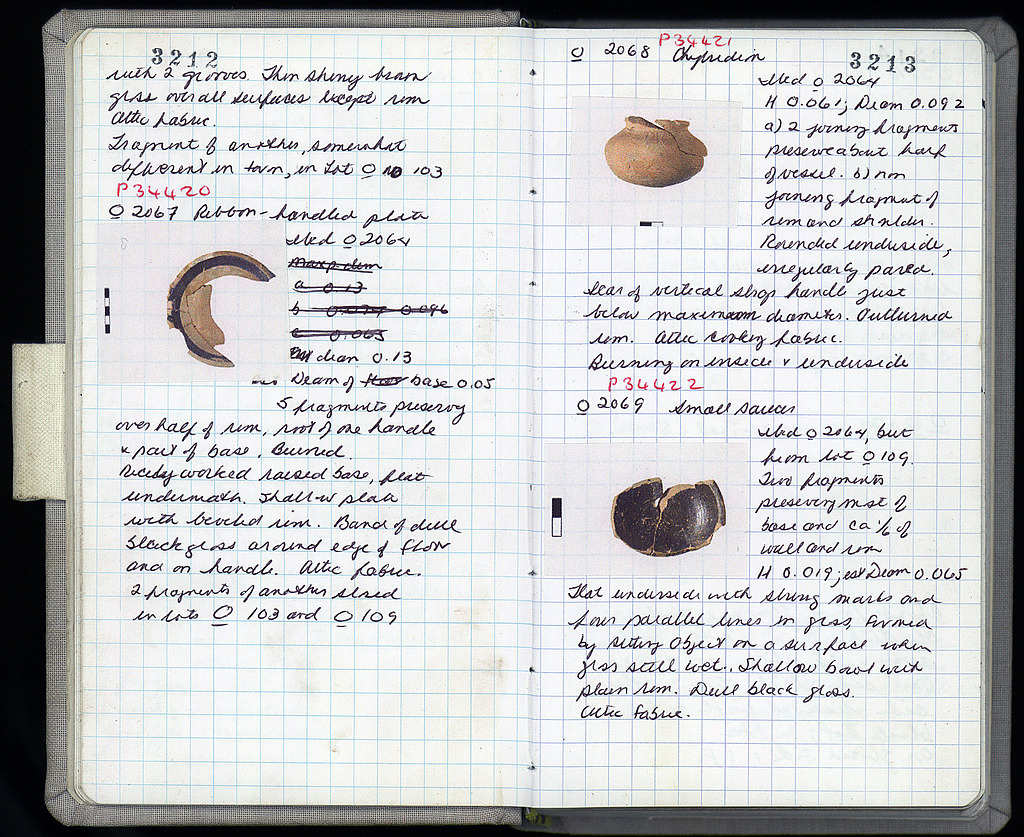 3212
with 2 grooves. Thin shiny brown
gloss overall surfaces except rim
Attic fabric.
Fragment of another, somewhat
different in form, in Lot O 103
P 34420
O 2067 Ribbon-handled plate
Med O 2064
Max p. dim
a 0.13
b 0.096
c 0.063
diam 0.13
Diam of base 0.05
5 fragments preserving
over half of rim, root of one handle
& part of base. Burned.
Nicely worked raised base, flat
underneath. Shallow plate
with beveled rim. Band of dull
black gloss around edge of floor
and on handle. Attic fabric.
2 fragments of another stored
in lots O 103 and O 109
P 34421
O 2068 Chytridion
3213
Med O 2064
H 0.061; Diam 0.092
a) 2 joining fragments
preserve about half
of vessel. b) non
joining fragment of
rim and shoulder.
Rounded underside,
irregularly pared.
Scar of vertical strap handle just
below maximum diameter. Outturned
rim. Attic cooking fabric.
Burning on inside & underside
P 34422
O 2069 Small saucer
Med O 2064, but
from lot O 109.
Two fragments
preserving most of
base and ca 1/6 of
wall and rim
H 0.019; est Diam 0.065
Flat underside with string marks and
four parallel lines in gloss, formed
by sitting object on a surface when
gloss still wet. Shallow bowl with
plain rim. Dull black gloss.
Attic fabric.